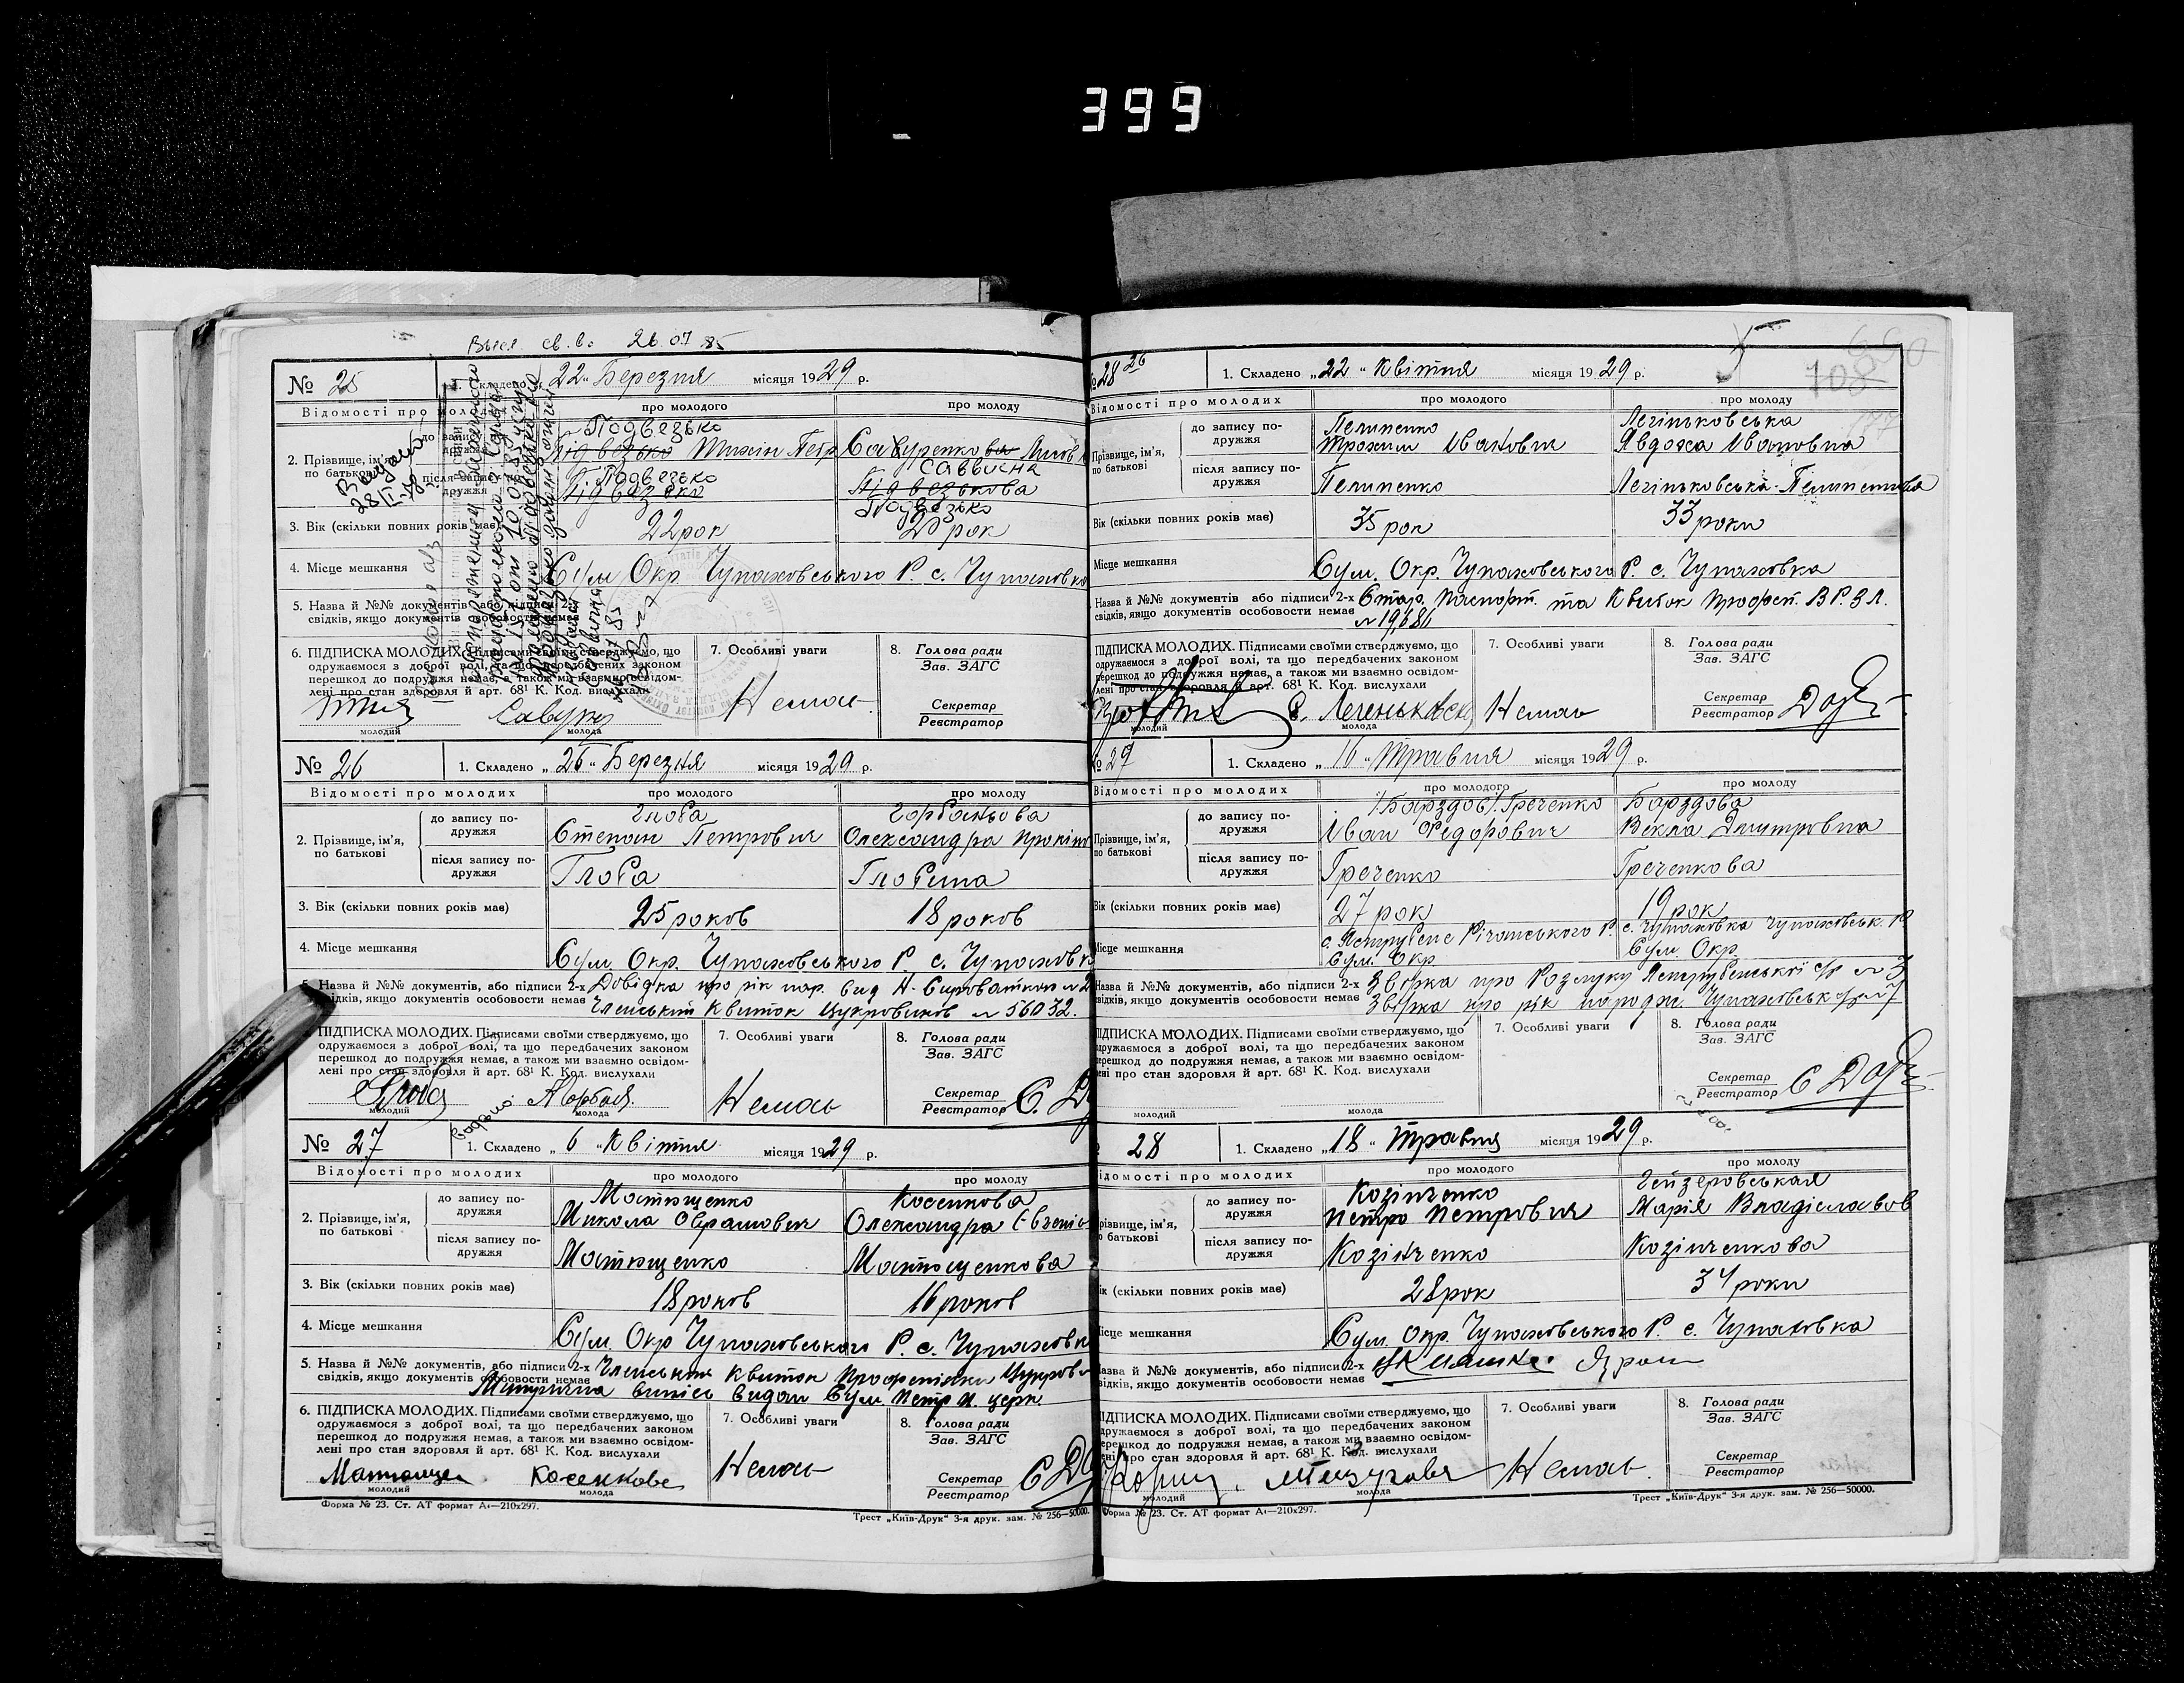 399
Высл. св.во 26.07.85
№ 25
1. Складено „ 22 “ Березня місяця 1929 р.
Відомості про молодих
про молодого
про молоду
2. Прізвище, ім'я, по батькові
до запису подружжя
Подвезько
Підвезько Тихін Петр
Савуренкова
Саввична
після запису подружжя
Подвезько
Підвезько
Підвезькова
Подвезько
3. Вік (скільки повних років має)
22 рок
20 рок
4. Місце мешкання
Сум Окр Чупаховського Р. с. Чупаховка
5. Назва й №№ документів, або підписи 2-х
свідків, якщо документів особовости немає
6. ПІДПИСКА МОЛОДИХ. Підписами своїми стверджуємо, що
одружаємося з доброї волі, та що передбачених законом
перешкод до подружжя немає, а також ми взаємно освідом-
лені про стан здоровля й арт. 68¹ К. Код. вислухали
молодий
молода
7. Особливі уваги
Немає
8. Голова ради
Зав. ЗАГС
Секретар
Реєстратор
№ 26
1. Складено „ 26 “ Березня місяця 1929 р.
Відомості про молодих
про молодого
про молоду
2. Прізвище, ім'я, по батькові
до запису подружжя
Глоба
Степан Петрович
Горбаньова
Олександра
після запису подружжя
Глоба
Глобина
3. Вік (скільки повних років має)
25 роков
18 роков
4. Місце мешкання
Сум. Окр. Чупаховського Р. с. Чупаховк
5. Назва й №№ документів, або підписи 2-х Довідка про рік нар. вид Н. Сироваткою № 2
свідків, якщо документів особовости немає Членський Квиток Цукровиков № 56032.
ПІДПИСКА МОЛОДИХ. Підписами своїми стверджуємо, що
одружаємося з доброї волі, та що передбачених законом
перешкод до подружжя немає, а також ми взаємно освідом-
лені про стан здоровля й арт. 68¹ К. Код. вислухали
молодий
молода
7. Особливі уваги
Немає
8. Голова ради
Зав. ЗАГС
Секретар
Реєстратор
№ 27
1. Складено „ 6 “ Квітня місяця 1929 р.
Відомості про молодих
про молодого
про молоду
2. Прізвище, ім'я, по батькові
до запису подружжя
Матющенко
Микола Обрамович
Косенкова
Олександра Євгенів
після запису подружжя
Матющенко
Матющенкова
3. Вік (скільки повних років має)
18 роков
16 роков
4. Місце мешкання
Сум Окр Чупаховського Р. с. Чупаховк
5. Назва й №№ документів, або підписи 2-х Членський квиток Профспілки Цукров
свідків, якщо документів особовости немає
Метрична випісь видан Сум Петр П. церк.
6. ПІДПИСКА МОЛОДИХ. Підписами своїми стверджуємо, що
одружаємося з доброї волі, та що передбачених законом
перешкод до подружжя немає, а також ми взаємно освідом-
лені про стан здоровля й арт. 68¹ К. Код. вислухали
молодий
Косенкова
молода
7. Особливі уваги
Немає
8. Голова ради
Зав. ЗАГС
Секретар
Реєстратор
Форма № 23. Ст. АТ формат А₄—210х297.
Трест „Київ-Друк“ 3-я друк. зам. № 256—50000.
28 26
1. Складено „ 22 “ Квітня місяця 1929 р.
Відомості про молодих
про молодого
про молоду
Прізвище, ім'я, по батькові
до запису подружжя
Пелипенко
Трохим Иванович
Легіньковська
Явдоха Ивановна
після запису подружжя
Пелипенко
Легіньковська-Пелипенкова
Вік (скільки повних років має)
35 рок
33 роки
Місце мешкання
Сум. Окр. Чупаховського Р. с. Чупаховка
Назва й №№ документів або підписи 2-х Стар. паспорт. та Квиток Профсп. В Р. З Л.
свідків, якщо документів особовости немає № 19,681
ПІДПИСКА МОЛОДИХ. Підписами своїми стверджуємо, що
одружаємося з доброї волі, та що передбачених законом
перешкод до подружжя немає, а також ми взаємно освідом-
лені про стан здоровля й арт. 68¹ К. Код. вислухали
молодий
молода
7. Особливі уваги
Немає
8. Голова ради
Зав. ЗАГС
Секретар
Реєстратор
№ 27
1. Складено „ 16 “ Травня місяця 1929 р.
Відомості про молодих
про молодого
про молоду
Прізвище, ім'я, по батькові
до запису подружжя
/Барздов/. Греченко
Іван Федорович
Барздова
Векла Дмитровна
після запису подружжя
Греченко
Греченкова
Вік (скільки повних років має)
27 рок
19 рок
Місце мешкання
с. Яструбене Річанського Р.
Сум. Окр
с. Чупаховка Чупаховськ. Р
Сум. Окр.
Назва й №№ документів, або підписи 2-х Звірка про Розлуку Яструбенської с/р № 3
свідків, якщо документів особовости немає Звірка про рік народж. Чупаховськ с/р № 7
ПІДПИСКА МОЛОДИХ. Підписами своїми стверджуємо, що
одружаємося з доброї волі, та що передбачених законом
перешкод до подружжя немає, а також ми взаємно освідом-
лені про стан здоровля й арт. 68¹ К. Код. вислухали
молодий
молода
7. Особливі уваги
8. Голова ради
Зав. ЗАГС
Секретар
Реєстратор
28
1. Складено „ 18 “ Травня місяця 1929 р.
Відомості про молодих
про молодого
про молоду
Прізвище, ім'я, по батькові
до запису подружжя
Козінченко
Петро Петрович
Гейзеровськая
Марія Владіславов
після запису подружжя
Козінченко
Козінченкова
Вік (скільки повних років має)
28 рок
34 роки
Місце мешкання
Сум. Окр. Чупаховського Р. с. Чупаховка
Назва й №№ документів, або підписи 2-х
свідків, якщо документів особовости немає
ПІДПИСКА МОЛОДИХ. Підписами своїми стверджуємо, що
одружаємося з доброї волі, та що передбачених законом
перешкод до подружжя немає, а також ми взаємно освідом-
лені про стан здоровля й арт. 68¹ К. Код. вислухали
молодий
молода
7. Особливі уваги
Немає
8. Голова ради
Зав. ЗАГС
Секретар
Реєстратор
Форма № 23. Ст. АТ формат А₄—210х297.
Трест „Київ-Друк“ 3-я друк. зам. № 256—50000.